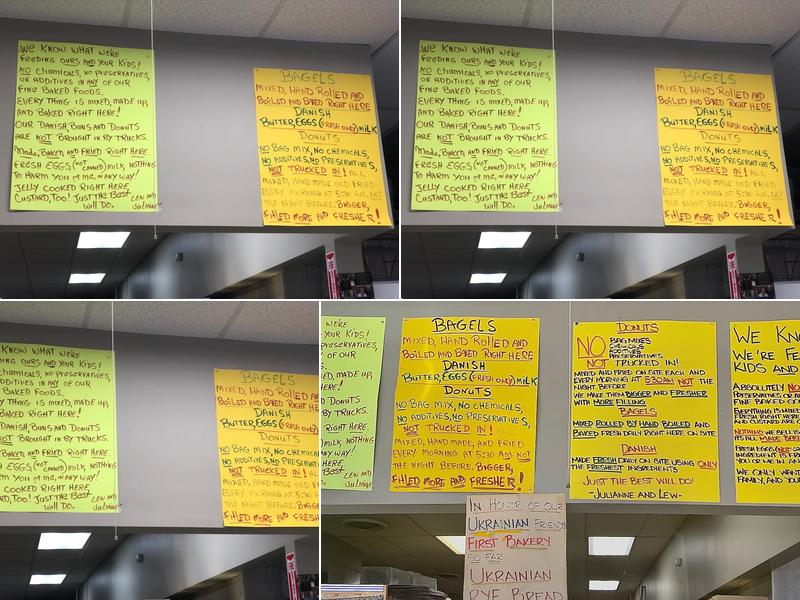 WE KNOW WHAT WE'RE
FEEDING OURS AND YOUR KIDS!
NO CHEMICALS, NO PRESERVATIVES,
OR ADDITIVES IN ANY OF OUR
FINE BAKED FOODS.
EVERY THING IS MIXED, MADE UP,
AND BAKED RIGHT HERE!
OUR DANISH, BUNS AND DONUTS
ARE NOT BROUGHT IN BY TRUCKS.
MADE, BAKED, AND FRIED RIGHT HERE.
FRESH EGGS, (NOT CANNED) MILK, NOTHING
TO HARM YOU OR ME, IN ANY WAY!
JELLY COOKED RIGHT HERE,
CUSTARD, TOO! JUST THE BEST
WILL DO.
LEW AND
BAGELS
MIXED, HAND ROLLED AND
BOILED AND BAKED RIGHT HERE
DANISH
BUTTER, EGGS (FRESH ONES) MILK
DONUTS
NO BAG MIX, NO CHEMICALS,
NO ADDITIVES, NO PRESERVATIVES,
NOT TRUCKED IN! ALL
MIXED, HAND MADE AND FRIED
EVERY MORNING AT 5:30 AM, NOT
THE NIGHT BEFORE. BIGGER,
FILLED MORE AND FRESHER!
WE KNOW WHAT WE'RE
FEEDING OURS AND YOUR KIDS!
NO CHEMICALS, NO PRESERVATIVES,
OR ADDITIVES IN ANY OF OUR
FINE BAKED FOODS.
EVERY THING IS MIXED, MADE UP,
AND BAKED RIGHT HERE!
OUR DANISH, BUNS AND DONUTS
ARE NOT BROUGHT IN BY TRUCKS.
MADE, BAKED, AND FRIED RIGHT HERE.
FRESH EGGS, (NOT CANNED) MILK, NOTHING
TO HARM YOU OR ME, IN ANY WAY!
JELLY COOKED RIGHT HERE,
CUSTARD, TOO! JUST THE BEST
WILL DO.
LEW AND
BAGELS
MIXED, HAND ROLLED AND
BOILED AND BAKED RIGHT HERE
DANISH
BUTTER, EGGS (FRESH ONES) MILK
DONUTS
NO BAG MIX, NO CHEMICALS,
NO ADDITIVES, NO PRESERVATIVES,
NOT TRUCKED IN! ALL
MIXED, HAND MADE AND FRIED
EVERY MORNING AT 5:30 AM, NOT
THE NIGHT BEFORE. BIGGER,
FILLED MORE AND FRESHER!
KNOW WHAT WE'RE
OURS AND YOUR KIDS!
CHEMICALS, NO PRESERVATIVES,
ADDITIVES IN ANY OF OUR
BAKED FOODS.
THING IS MIXED, MADE UP,
BAKED RIGHT HERE!
DANISH, BUNS AND DONUTS
NOT BROUGHT IN BY TRUCKS.
BAKED, AND FRIED RIGHT HERE.
EGGS, (NOT CANNED) MILK, NOTHING
HARM YOU OR ME, IN ANY WAY!
COOKED RIGHT HERE,
TOO! JUST THE BEST
WILL DO.
LEW AND
BAGELS
MIXED, HAND ROLLED
BOILED AND BAKED RIGHT
DANISH
BUTTER, EGGS (FRESH ONES)
DONUTS
NO BAG MIX, NO CHEMICALS,
NO ADDITIVES, NO
NOT TRUCKED IN!
MIXED, HAND MADE AND
EVERY MORNING AT 5:30
THE NIGHT BEFORE.
FILLED MORE AND
WE'RE
YOUR KIDS!
PRESERVATIVES,
OF OUR
MADE UP,
DONUTS
BY TRUCKS.
RIGHT HERE.
MILK, NOTHING
WAY!
HERE,
BEST
LEW AND
BAGELS
MIXED, HAND ROLLED AND
BOILED AND BAKED RIGHT HERE
DANISH
BUTTER, EGGS (FRESH ONES) MILK
DONUTS
NO BAG MIX, NO CHEMICALS,
NO ADDITIVES, NO PRESERVATIVES,
NOT TRUCKED IN! ALL
MIXED, HAND MADE, AND FRIED
EVERY MORNING AT 5:30 AM NOT
THE NIGHT BEFORE, BIGGER,
FILLED MORE AND FRESHER!
DONUTS
NO BAG MIXES
ADDITIVES
PRESERVATIVES
NOT TRUCKED IN!
MIXED AND FRIED ON SITE EACH AND
EVERY MORNING AT 5:30AM NOT THE
NIGHT BEFORE
WE MAKE THEM BIGGER AND FRESHER
WITH MORE FILLING
BAGELS
MIXED, ROLLED BY HAND BOILED AND
BAKED FRESH DAILY RIGHT HERE ON SITE
DANISH
MADE FRESH DAILY ON SITE USING ONLY
THE FRESHEST INGREDIENTS
JUST THE BEST WILL DO!
-JULIANNE AND LEW-
WE
WE'RE
KIDS AND
ABSOLUTELY
PRESERVATIVES OR
FINE BAKED
EVERYTHING IS
FRESH RIGHT
AND CUSTARD ARE
NOTHING WE
ITS ALL MADE
FRESH EGGS
INGREDIENT IS
YOU OR ME IN
WE ONLY WANT
FAMILY, AND
IN HONOR OF OUR
UKRAINIAN FRIENDS
FIRST BAKERY
SO FAR
UKRAINIAN
RYE BREAD